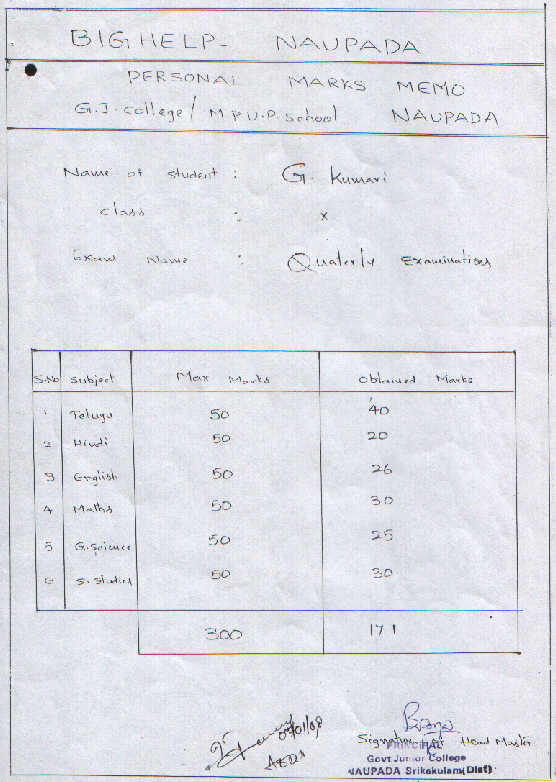 BIGHELP- NAUPADA
PERSONAL MARKS MEMO
G.J. college / M P U.P. School NAUPADA
Name of student : G. Kumari
class : X
Exam Name : Quaterly Examinations
S.No Subject Max Marks Obtained Marks
1 Telugu 50 40
2 Hindi 50 20
3 English 50 26
4 Maths 50 30
5 G. Science 50 25
6 S. Studies 50 30
300 171
Signature of Head Master
PRINCIPAL
Govt Junior College
NAUPADA Srikakulam(Dist)